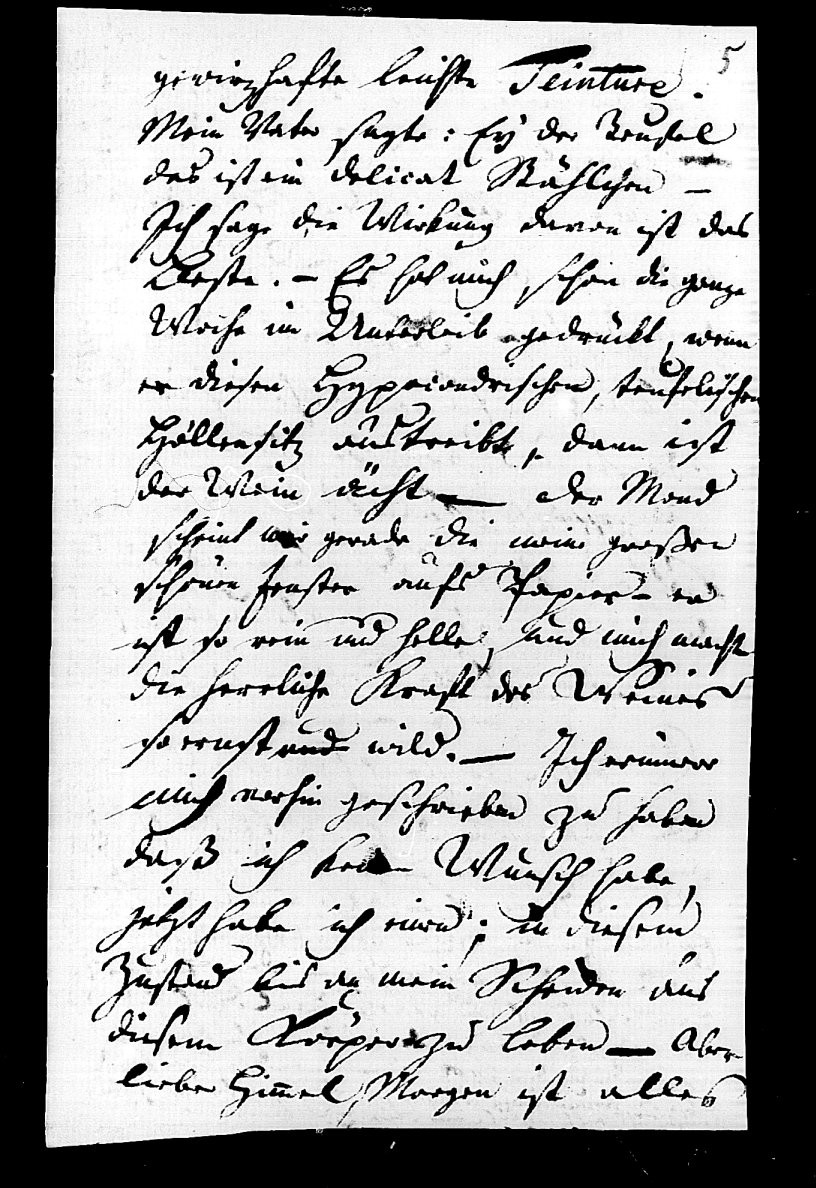 5
gewirzhafte leichte Teinture.
Mein Vater sagte: Ey der Teufel
das ist ein delicat Stähligen –
Ich sage die Wirkung davon ist das
Beste. – Es hat mich schon die ganze
Woche im Unterleib gedrückt, wenn
er diesen Hypocondrischen, teufelischen
Höllensitz austreibt, dann ist
der Wein ächt — der Mond
scheint mir gerade die meine großen
schönen Fenster aufs Papier – er
ist so rein und helle, und mich macht
die herrliche Kraft des Weines
so ernst und wild. — Ich erinnere
mich vorhin geschrieben zu haben
daß ich keinen Wunsch habe,
jetzt habe ich einen; in diesem
Zustand bis an mein Scheiden aus
diesem Körper zu leben — Aber
lieber Himmel, Morgen ist alles